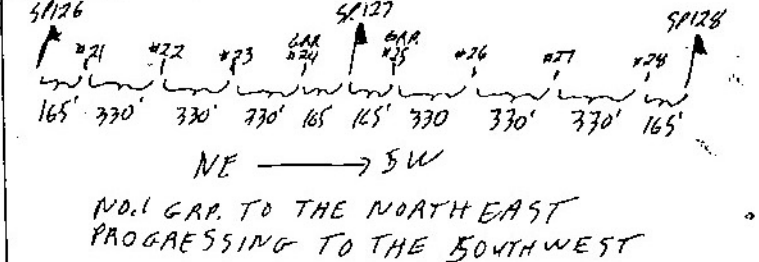 SP126 SP127 SP128
#21 #22 #23 GRP. #24 GRP. #25 #26 #27 #28
165' 330' 330' 330' 165 165' 330 330' 330' 165'
NE → SW
NO.1 GRP. TO THE NORTHEAST
PROGRESSING TO THE SOUTHWEST